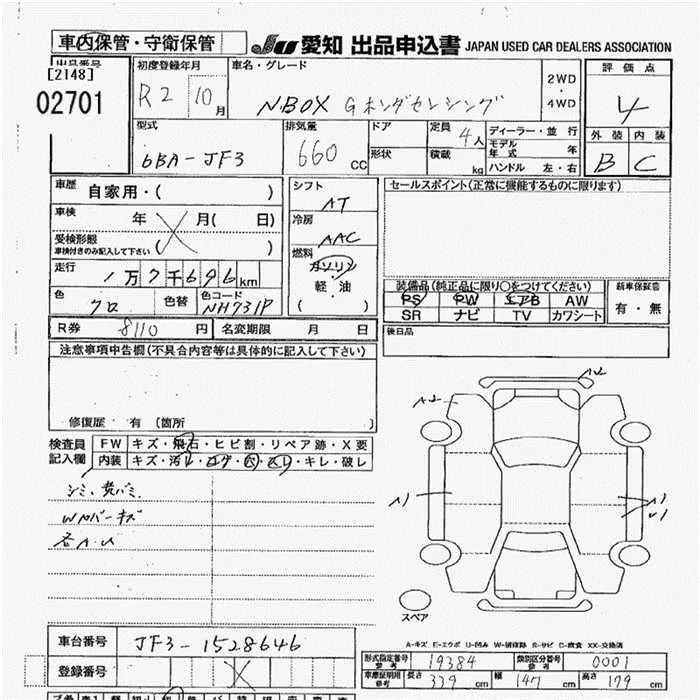 車内保管・守衛保管
JU 愛知 出品申込書 JAPAN USED CAR DEALERS ASSOCIATION
出品番号 初度登録年月 車名・グレード 評価点
[2148]
02701
R2 10月 NBOX Gホンダセンシング 2WD・4WD 4
型式 排気量 ドア 定員 4人 ディーラー・並行 外装 内装
6BA-JF3 660cc 形状 積載 kg モデル年式 年 B C
ハンドル 左・右
車歴 自家用・( ) シフト AT セールスポイント(正常に機能するものに限ります)
車検 年 月( 日) 冷房 AAC
受検形態 ( )
車検付きのみ記入して下さい
燃料 ガソリン
軽・油
( )
走行 1万7千696km
装備品(純正品に限り○をつけてください) 新車保証書
PS PW エアB AW 有・無
SR ナビ TV カワシート
色 クロ 色替 色コード NH731P
R券 8110円 名変期限 月 日
後日品
注意事項申告欄(不具合内容等は具体的に記入して下さい)
修復歴・有 (箇所 )
検査員記入欄 FW キズ・飛石・ヒビ割・リペア跡・X要
内装 キズ・汚レ・コゲ・穴・スレ・キレ・破レ
シミ、黄バミ
Wカバーキズ
各A.U
A2
A2
A1
A1
U1
スペア
A-キズ E-エクボ U-凹み W-補修跡 S-サビ C-腐食 XX-交換済
車台番号 JF3-1528646
登録番号
型式指定番号 参考 19384 類別区分番号 参考 0001
車庫証明用 参考 長さ 339cm 幅 147cm 高さ 179cm